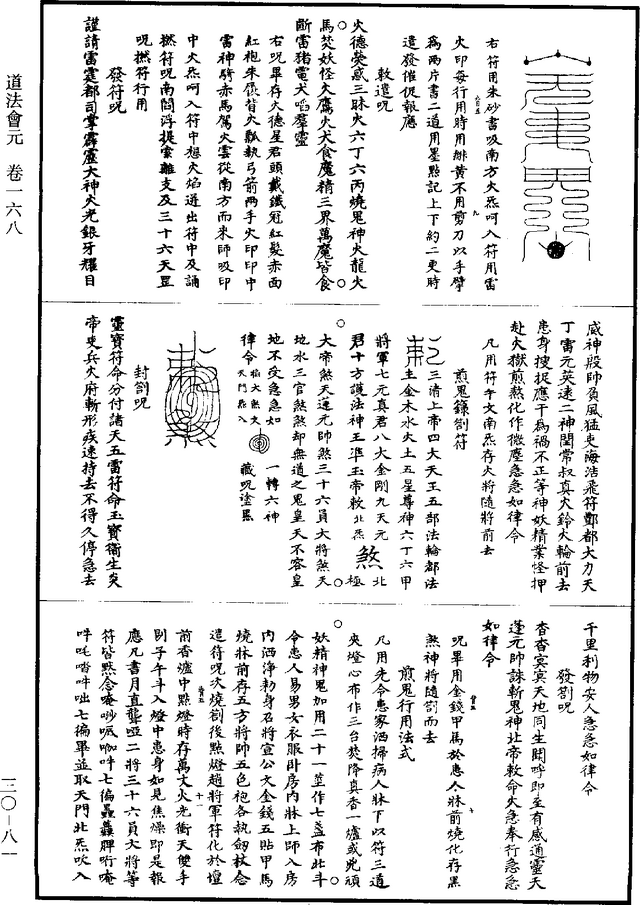 道法會元　卷一六八
三〇—八一
右符用朱砂書吸南方火炁呵入符用雷
火印每行用時用緋黃不用剪刀以手擘
為兩片書二道用墨點記上下約二更時
遣發催促報應
敕遣呪
火德熒惑三昧火六丁六丙燒鬼神火龍火
馬焚妖怪火鷹火犬食魔精三界萬魔皆食
斷雷猪電犬啗羣靈
右呪畢存火德星君頭戴鐵冠紅髮赤面
紅袍朱履背火瓢執弓箭兩手火印印中
雷神騎赤馬駕火雲從南方而來師吸印
中火炁呵入符中想火焰迸出符中及誦
撚符呪南閻浮提案離支及三十六天罡
呪撚符行用
發符呪
謹請雷霆都司掌霹靂大神火光銀牙耀目
威神殷師負風猛吏海浩飛符酆都大力天
丁雷元英速二神閏常叔真火鈴火輪前去
患身搜捉應干為禍不正等神妖精業怪押
赴火獄煎熬化作微塵急急如律令
凡用符午文南炁存火將隨將前去
煎鬼錄劄符
三清上帝四大天王五部法輪都法
主金木水火土五星尊神六丁六甲
將軍七元真君八火金剛九天元
君十方護法神王準玉帝敕北炁煞北極
大帝煞天蓬元帥煞三十六員大將煞天
地水三官煞煞却無道之鬼皇天不容皇
地不受急急如
律令
一轉六神
藏呪塗黑
封劄呪
靈寶符命分付諸天五雷符命玉寶衞生炎
帝吏兵火府斬形疾速持去不得久停急去
千里利物安人急急如律令
發劄呪
杳杳冥冥天地同生聞呼即至有感通靈天
蓬元帥誅斬鬼神上帝敕命火急奉行急急
如律令
呪畢用金錢甲馬於患人牀前燒化存黑
煞神將隨劄而去
煎鬼行用法式
凡用先令患家洒掃病人牀下以符三道
夾燈心布作三台焚降真香一爐或兇頑
妖精神鬼加用二十一莖作七盞布北斗
令患人易男女衣服卧房內牀上師入房
內洒淨勑身召將宣公文金錢五貼甲馬
燒牀前存五方將帥五色袍各執劒杖念
遣待呪次燒劄後點燈趙將軍符化於壇
前香爐中點燈時存萬丈火光衝天雙手
剔子午斗入燈中患身如見焦燥即是報
應凡書月直聾啞二將三十六員大將等
符皆黙念唵吵嚈㗇吽七徧
吽吒㗳吽咄七徧畢並取天門北炁吹入